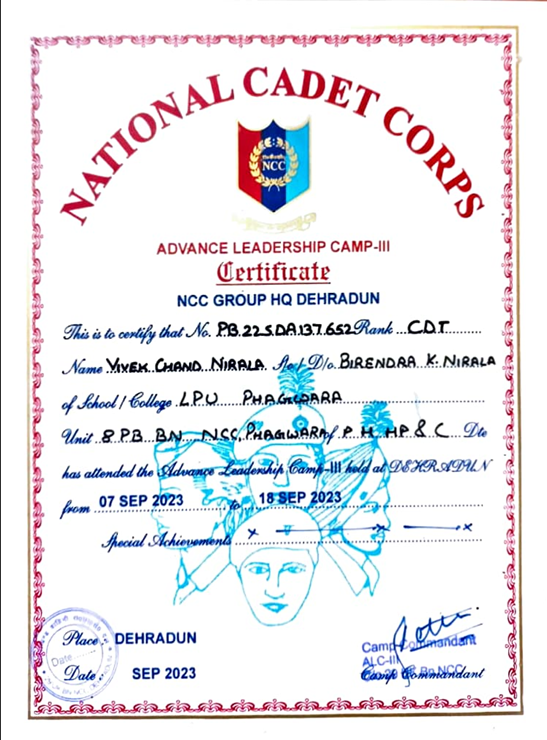 NATIONAL CADET CORPS
NCC
ADVANCE LEADERSHIP CAMP-III
Certificate
NCC GROUP HQ DEHRADUN
This is to certify that No. PB.22.SDA.137.652 Rank CDT
Name VIVEK CHAND NIRALA So / D/o BIRENDRA K. NIRALA
of School / College LPU PHAGWARA
Unit 8 PB BN NCC, PHAGWARA of P H HP & C Dte
has attended the Advance Leadership Camp-III held at DEHRADUN
from 07 SEP 2023 to 18 SEP 2023
Special Achievements x x x
Place : DEHRADUN
Date : SEP 2023
Date
Camp Commandant
ALC-III
Bn NCC
Camp Commandant